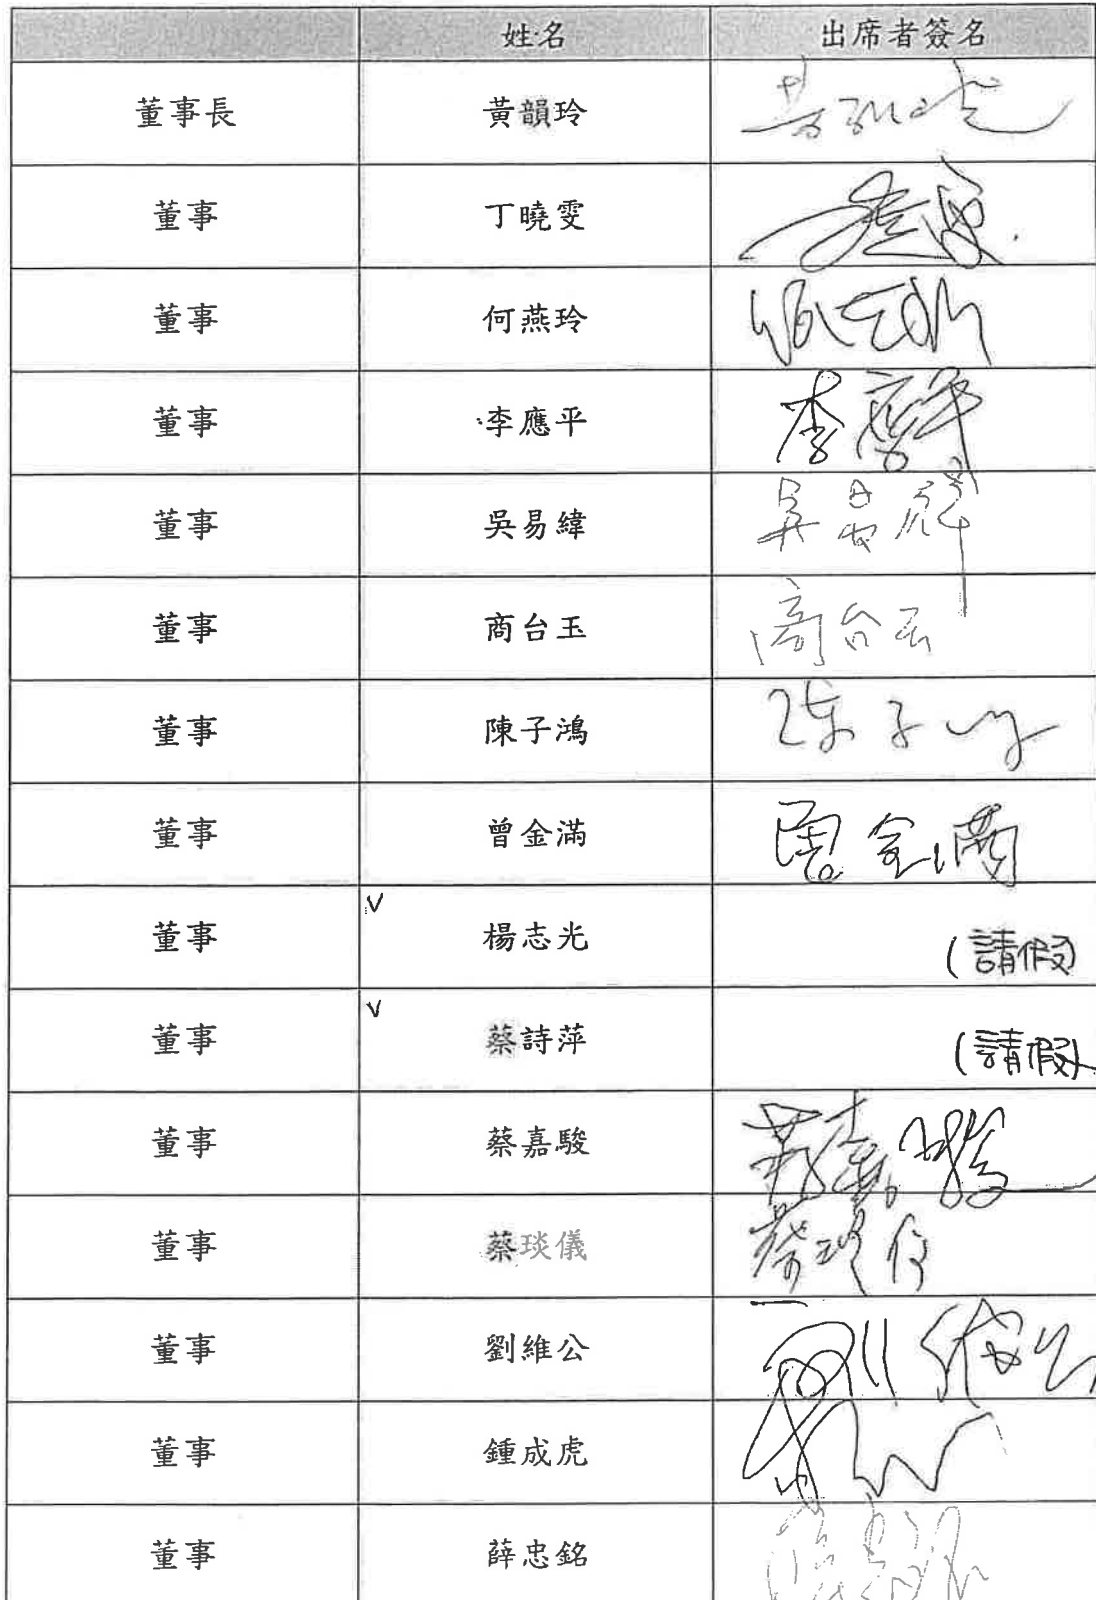 姓名 出席者簽名
董事長 黃韻玲 黃韻玲
董事 丁曉雯
董事 何燕玲
董事 李應平 李應平
董事 吳易緯 吳易緯
董事 商台玉 商台玉
董事 陳子鴻 陳子鴻
董事 曾金滿 曾金滿
董事 V 楊志光 (請假)
董事 V 蔡詩萍 (請假)
董事 蔡嘉駿 蔡嘉駿
董事 蔡琰儀 蔡琰儀
董事 劉維公 劉維公
董事 鍾成虎
董事 薛忠銘